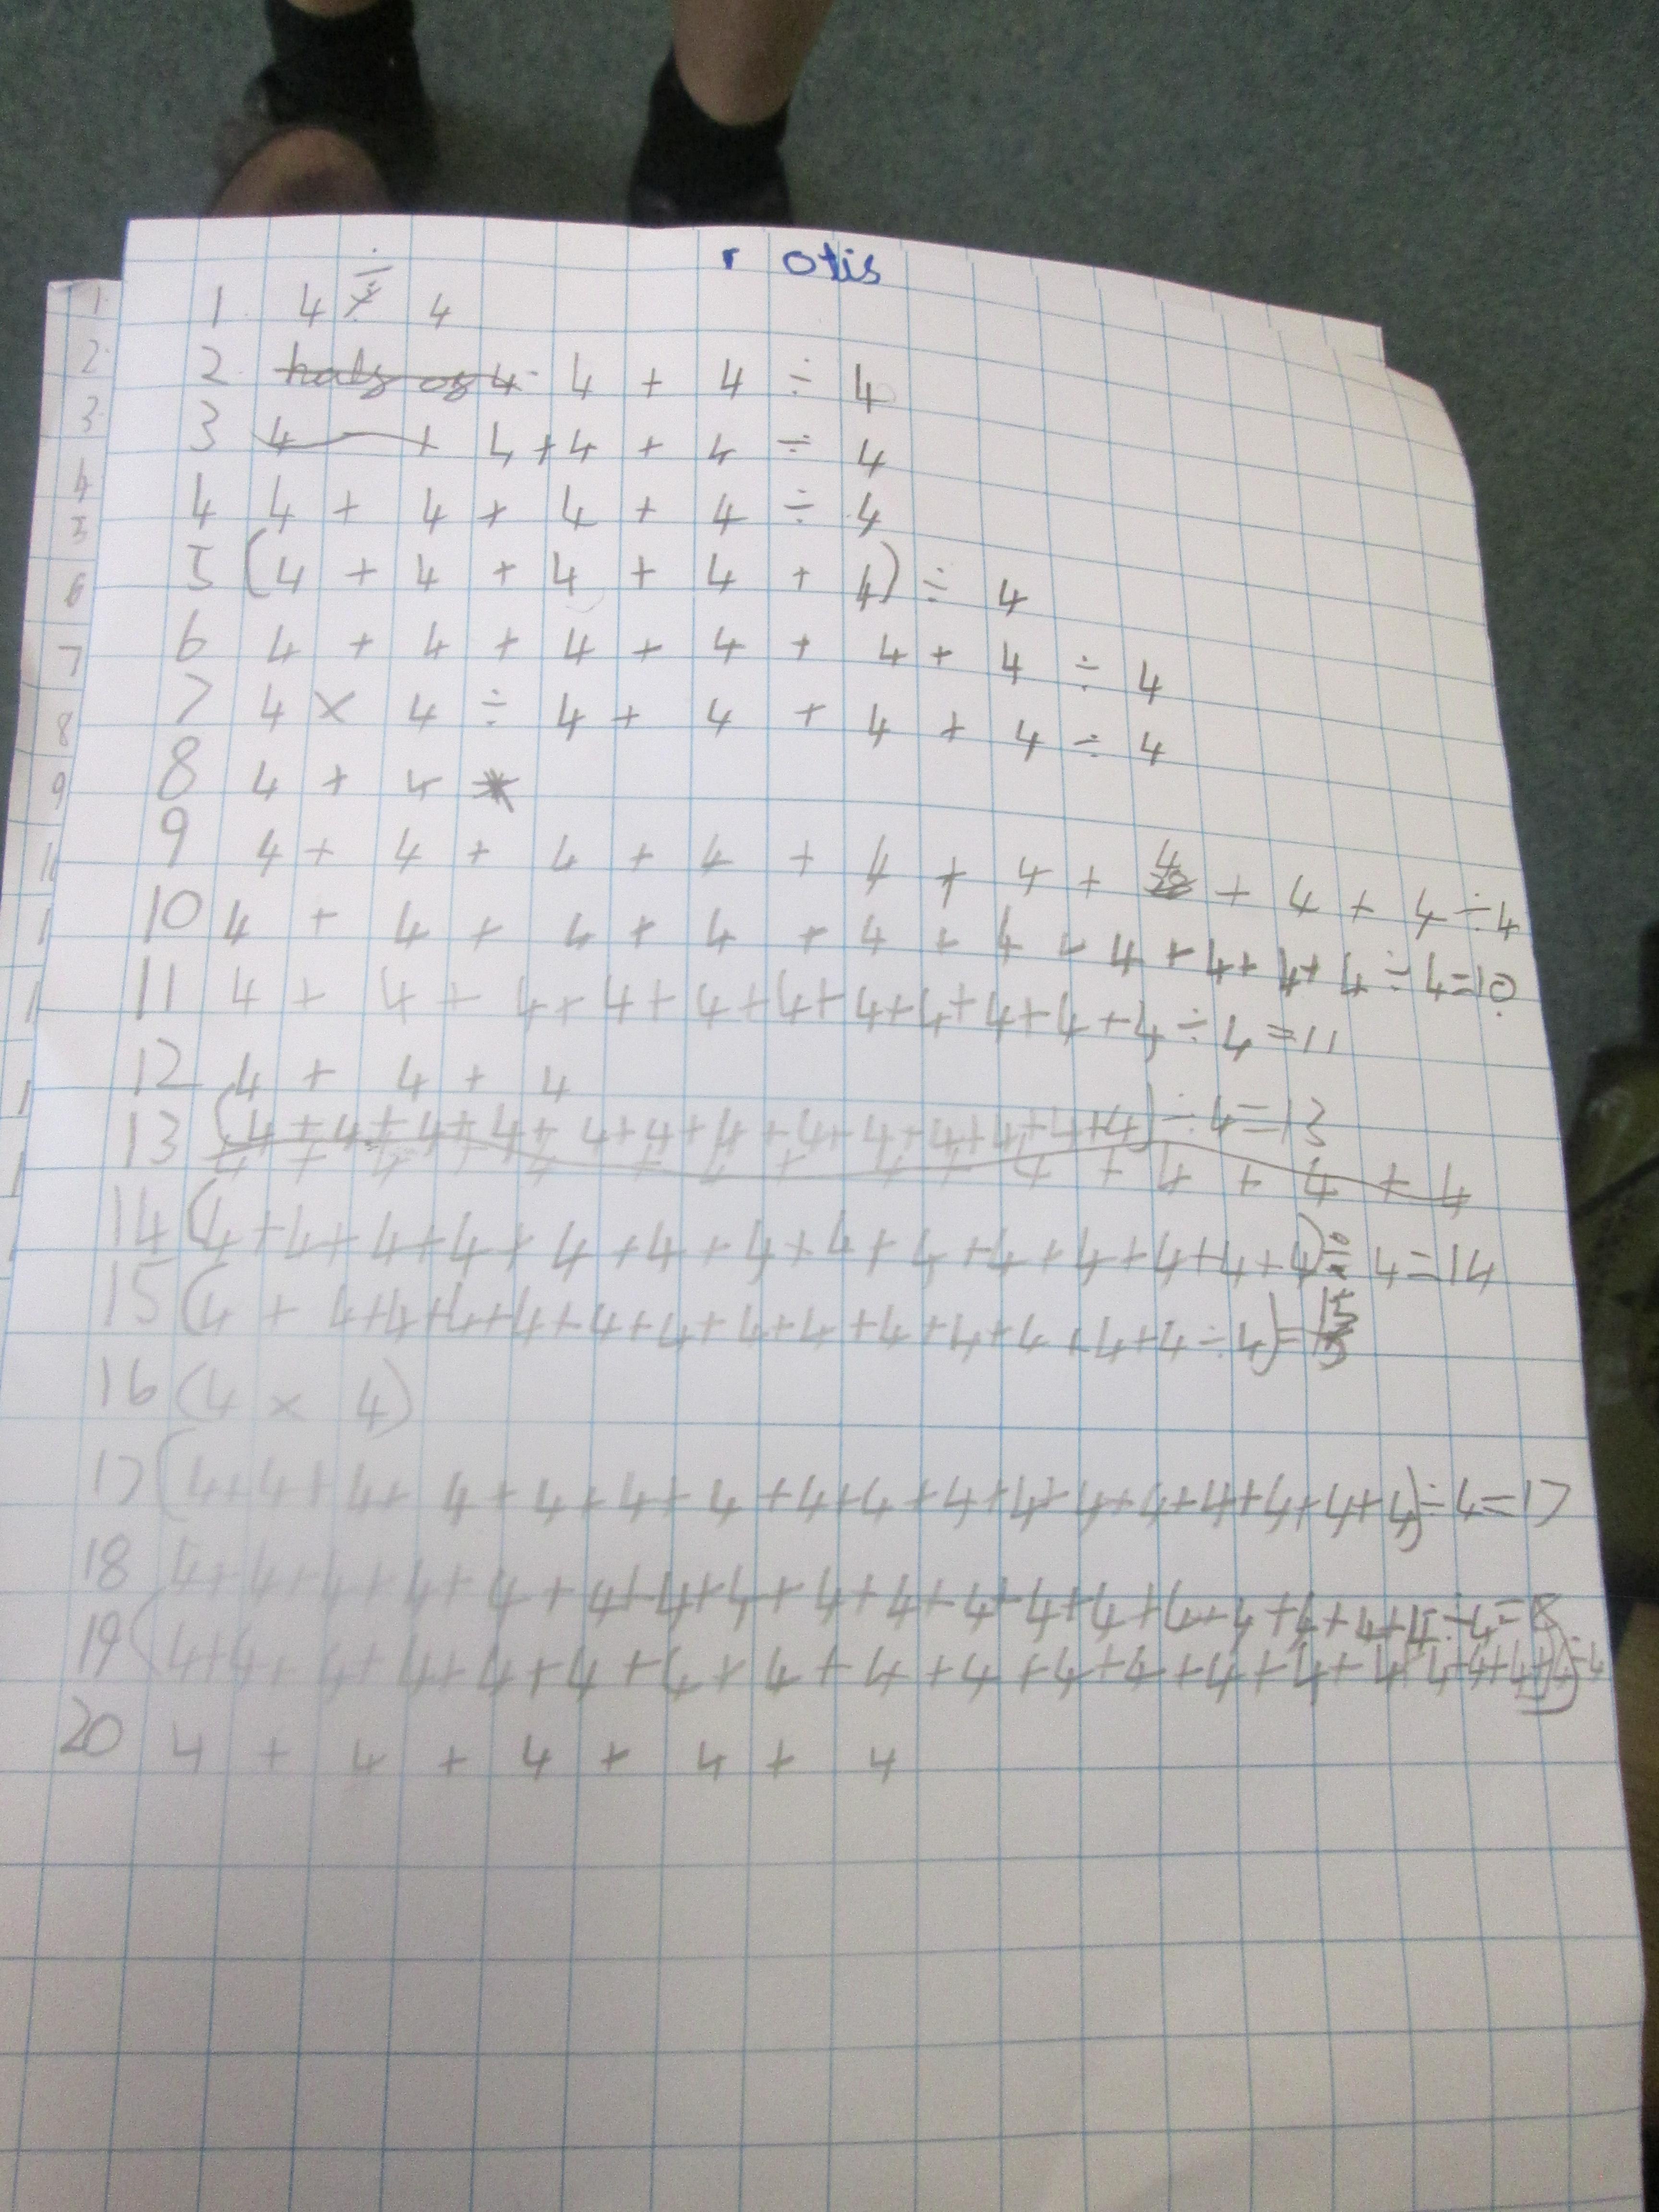 r otis
1 4 ÷ 4
2 half of 4 4 + 4 ÷ 4
3 4 + 4 + 4 + 4 ÷ 4
4 4 + 4 + 4 + 4 ÷ 4
5 (4 + 4 + 4 + 4 + 4) ÷ 4
6 4 + 4 + 4 + 4 + 4 + 4 ÷ 4
7 4 × 4 ÷ 4 + 4 + 4 + 4 ÷ 4
8 4 + 4
9 4 + 4 + 4 + 4 + 4 + 4 + 4 + 4 + 4 ÷ 4
10 4 + 4 + 4 + 4 + 4 + 4 + 4 + 4 + 4 + 4 ÷ 4 = 10
11 4 + 4 + 4 + 4 + 4 + 4 + 4 + 4 + 4 + 4 + 4 ÷ 4 = 11
12 4 + 4 + 4
13 (4 + 4 + 4 + 4 + 4 + 4 + 4 + 4 + 4 + 4 + 4 + 4 + 4) ÷ 4 = 13
14 (4 + 4 + 4 + 4 + 4 + 4 + 4 + 4 + 4 + 4 + 4 + 4 + 4 + 4) ÷ 4 = 14
15 (4 + 4 + 4 + 4 + 4 + 4 + 4 + 4 + 4 + 4 + 4 + 4 + 4 + 4 ÷ 4) = 15
16 (4 × 4)
17 (4 + 4 + 4 + 4 + 4 + 4 + 4 + 4 + 4 + 4 + 4 + 4 + 4 + 4 + 4 + 4 + 4) ÷ 4 = 17
18 4 + 4 + 4 + 4 + 4 + 4 + 4 + 4 + 4 + 4 + 4 + 4 + 4 + 4 + 4 + 4 + 4 + 4 ÷ 4 = 8
19 (4 + 4 + 4 + 4 + 4 + 4 + 4 + 4 + 4 + 4 + 4 + 4 + 4 + 4 + 4 + 4 + 4 + 4 + 4) ÷ 4
20 4 + 4 + 4 + 4 + 4